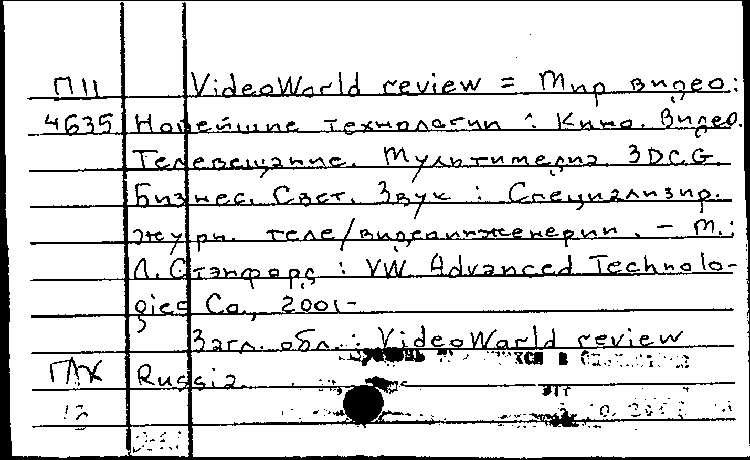 П11 VideoWorld review = Мир видео:
4635 Новейшие технологии : Кино. Видео.
Телевещание. Мультимедиа. 3D.C.G.
Бизнес. Свет. Звук : Специализир.
журн. теле/видеоинженерии. – М.;
Л. Стэнфорд : VW Advanced Technolo-
gies Co., 2001-
Загл. обл.: VideoWorld review
ГЛК Russia.
12